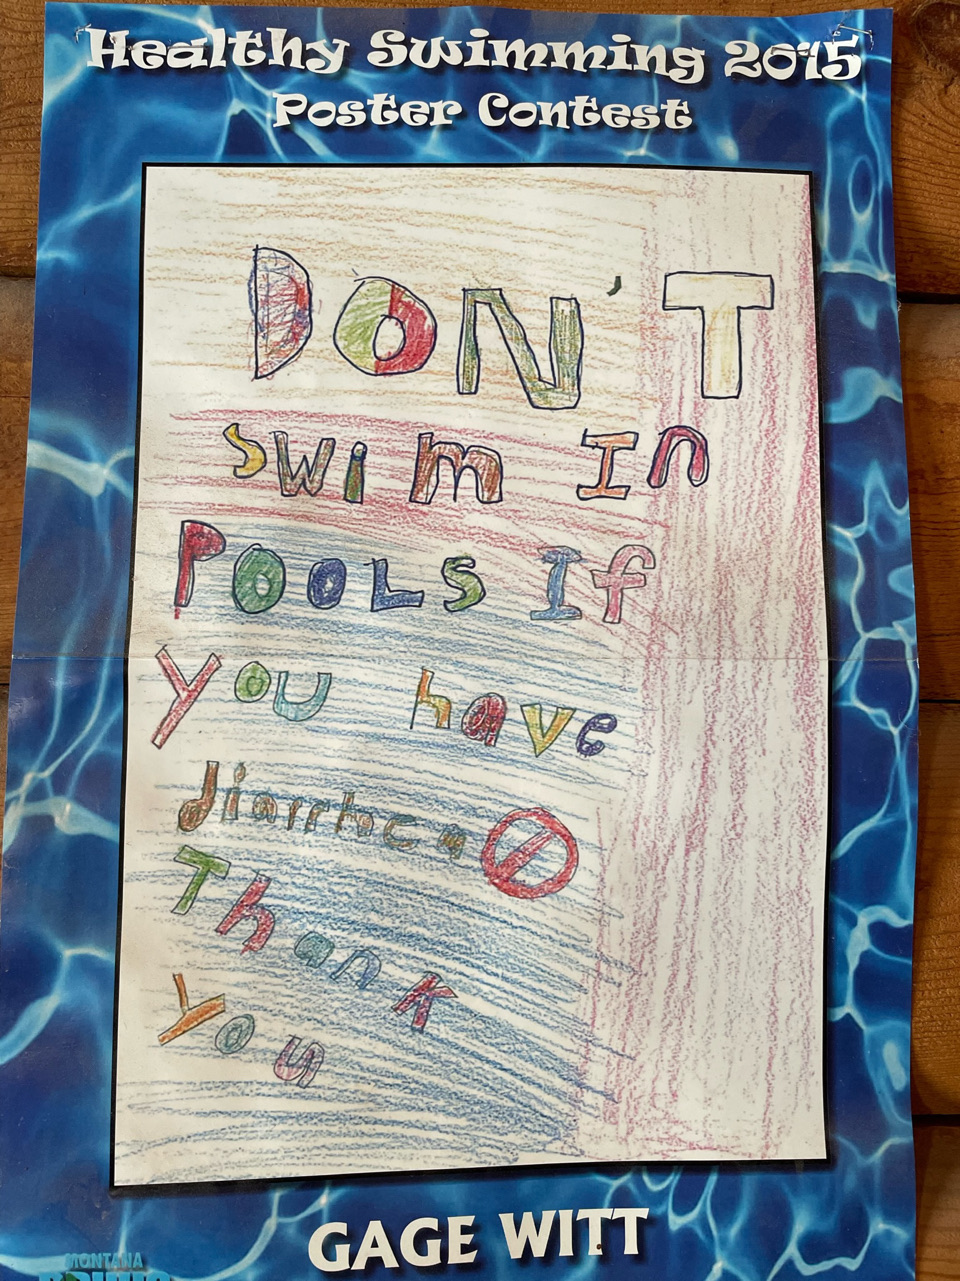 Healthy Swimming 2015
Poster Contest
DON'T
swim In
POOLS If
you have
diarrhea
Thank
You
GAGE WITT
MONTANA